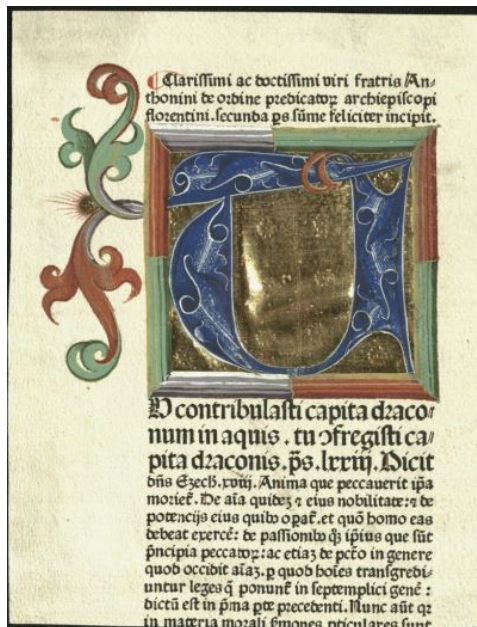 Clarissimi ac doctissimi viri fratris An-
thonini de ordine predicatoꝝ archiepiscopi
florentini. secunda ꝑs sūme feliciter incipit.
TU contribulasti capita draco-
num in aquis. tu ↄfregisti ca-
pita draconis. p̄s. lxxiij. Dicit
dñs Ezech. xviij. Anima que peccauerit ip̄a
moriet᷑. De aīa quideꝫ ⁊ eius nobilitate: ⁊ de
potencijs eius quibꝰ oꝑat᷑. et quō homo eas
debeat exercē: de passionibꝰ q̄ꝫ ip̄ius que sūt
p̄ncipia peccatoꝝ: ac etiaꝫ de pctō in genere
quod occidit aīaꝫ. ꝑ quod hoīes transgredi-
untur leges q̄ ponunt᷑ in septemplici gene᷑:
dictū est in p̄ma ꝑte precedenti. Nunc aūt qꝛ
in materia morali ẜmones ꝑticulares sunt